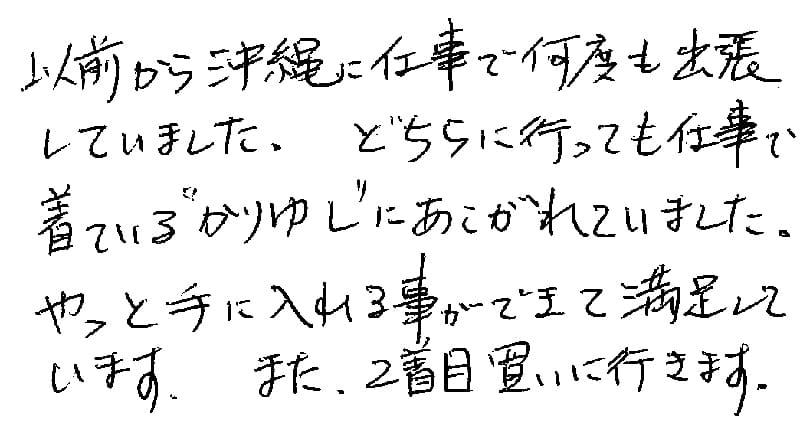 以前から沖縄に仕事で何度も出張
していました。 どちらに行っても仕事で
着ている"かりゆし"にあこがれていました。
やっと手に入れる事ができて満足して
います。 また、2着目買いに行きます。